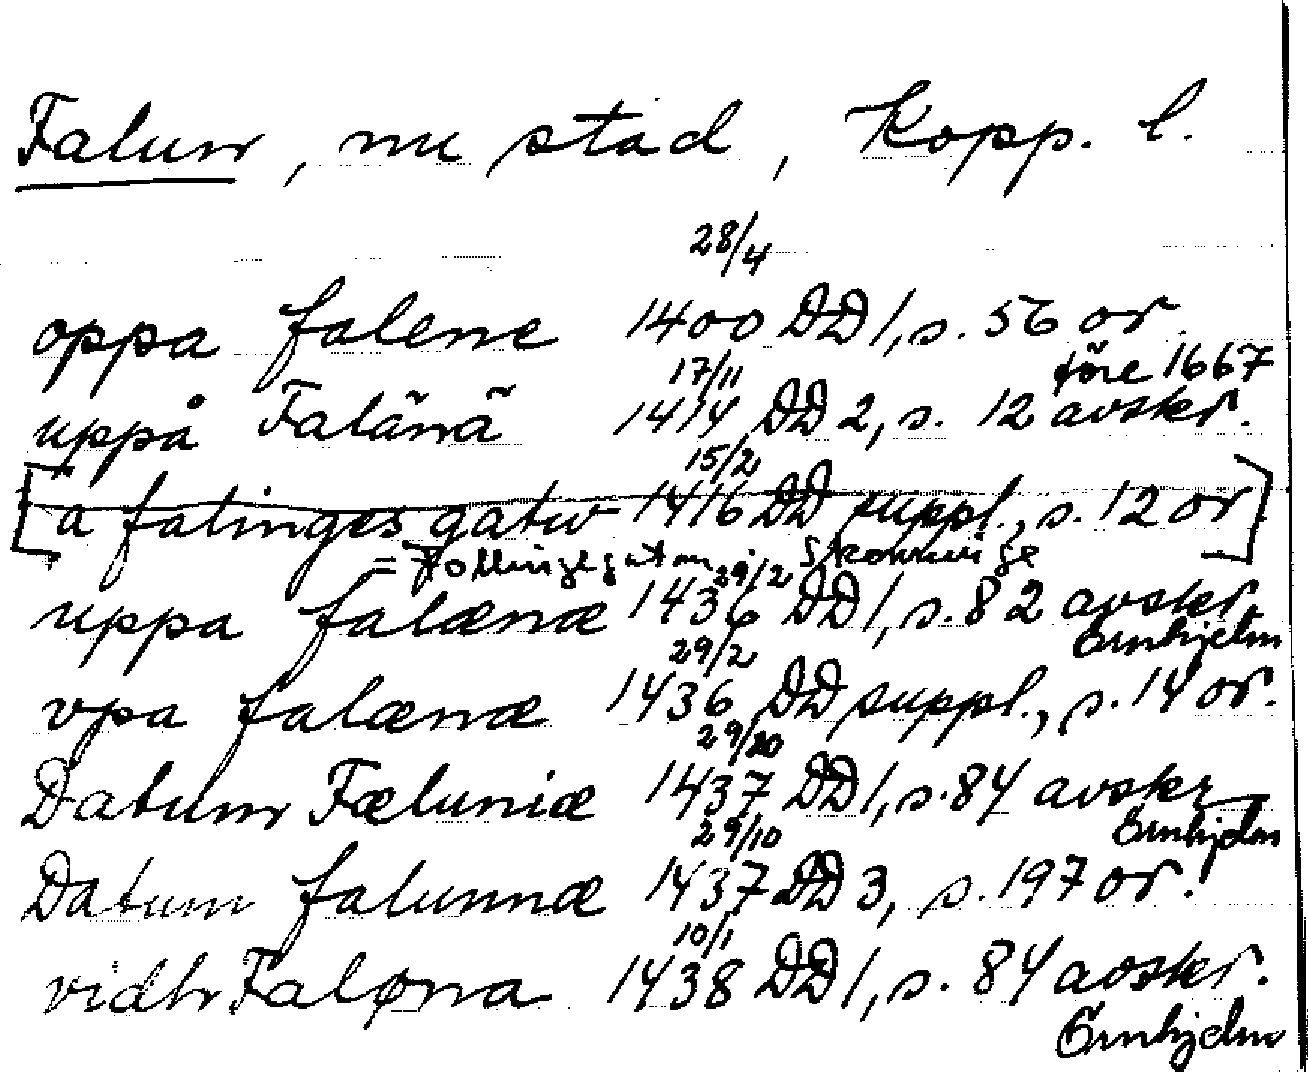 Falun, nu stad, Kopp. l.
28/4
oppa falene 1400 DD 1, s. 56 or
17/11 före 1667
uppå Falãnã 1414 DD 2, s. 12 avskr.
15/2
[a falinges gatw 1416 DD suppl., s. 12 or]
= Follingegatan, Skenninge
29/2
uppa falænæ 1436 DD 1, s. 82 avskr.
Örnhjelm
29/2
vpa falænæ 1436 DD suppl., s. 14 or.
29/10
Datum Fæluniæ 1437 DD 1, s. 84 avskr
Örnhjelm
29/10
Datum falunnæ 1437 DD 3, s. 197 or.
10/1
vidh Faløna 1438 DD 1, s. 84 avskr.
Örnhjelm